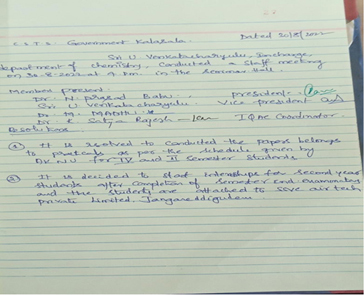 C.S.T.S. Government Kalasala. Dated 30/8/2022
Sri U Venkatacharyulu, Incharge,
department of chemistry, Conducted a staff meeting
on 30.8.2022 at 4 Pm. in the Seminar Hall
Members present.
Dr. N. Prasad Babu.. president-
Sri U Venkatacharyulu Vice president
Dr. M. MADHU.
Dr C Satya Rajesh IQAC Coordinator.
Resolutions
① It is resolved to conducted the papers belongs
to practicals as per the schedule given by
AKNU for IV and II semester students
② It is decided to start Internships for second year
students after Completion of semester end examinations
and the students are attached to save air tech
private Limited, Jangareddigudem